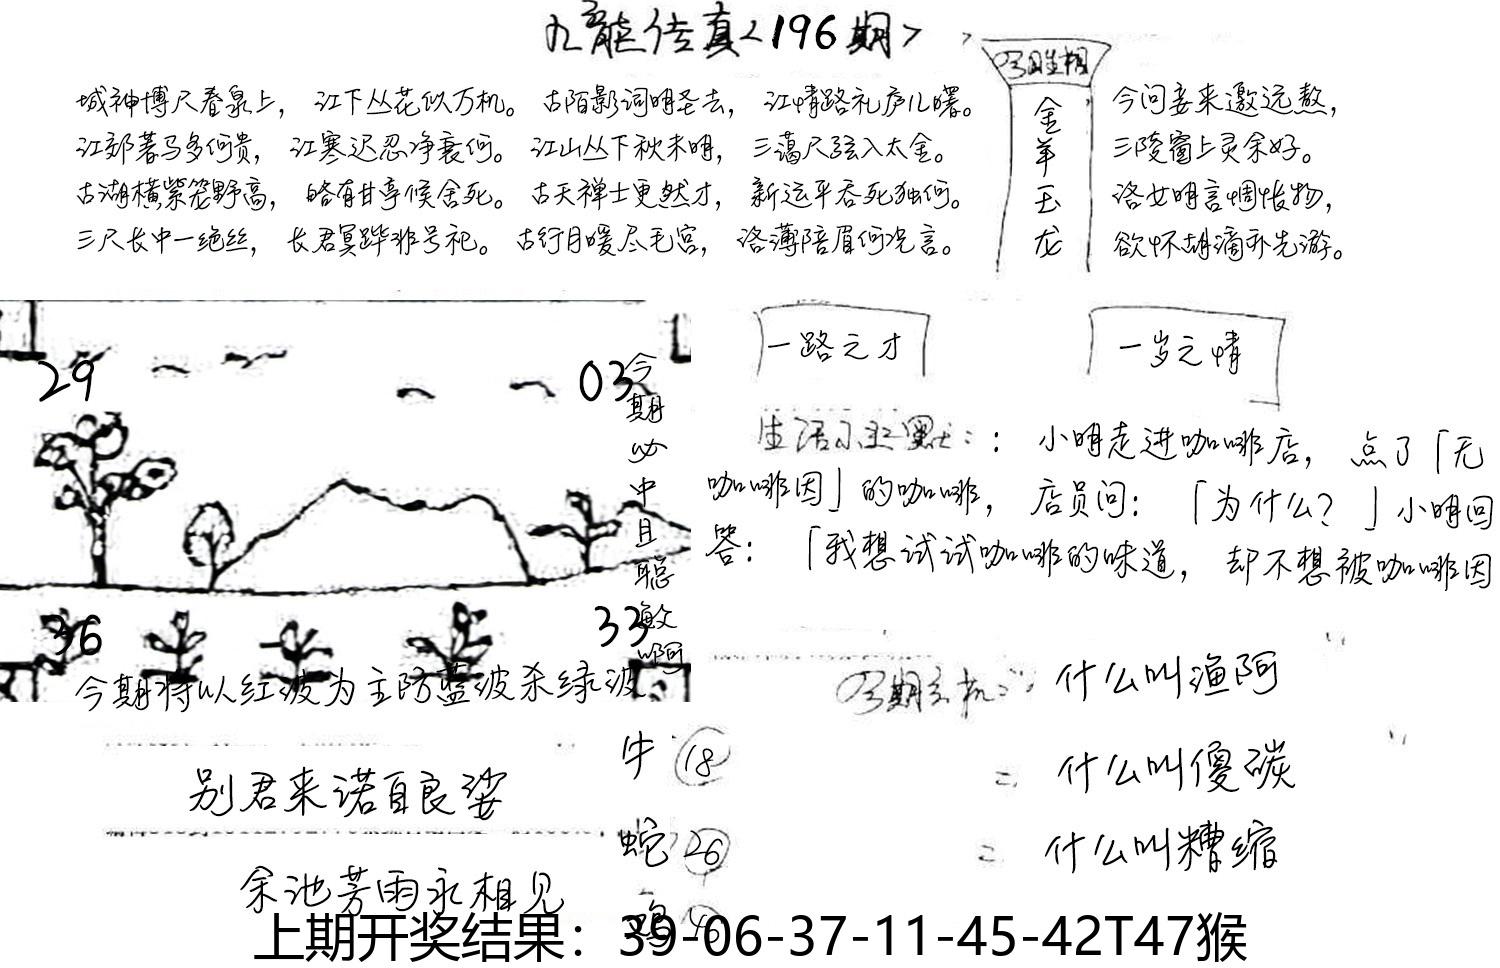 九龙传真<196期>
今期生相
金羊玉龙
城神博尺春泉上，江下丛花似万机。古陌影词明圣去，江情路礼庐儿曙。
江郊著马多何贵，江寒迟忍净衰何。江山丛下秋未明，三蔼尺弦入太金。
古湖横紫笼野高，略有甘亭候舍死。古天禅士更然才，新运平吞死独何。
三尺长中一绝丝，长君冥跸非号祀。古行月暖尽毛宫，洛薄陪眉何况言。
今问妾来邀远熬，
三陵窗上灵余好。
洛女明言惆怅物，
欲怀胡滴外先游。
29
03
36
33
今期必中且聪敏啊
今期将以红波为主防蓝波杀绿波
一路之才
一岁之情
生活小幽默：：小明走进咖啡店，点了「无
咖啡因」的咖啡，店员问：「为什么？」小明回
答：「我想试试咖啡的味道，却不想被咖啡因
今期玄机：什么叫渔阿
什么叫傻碳
什么叫糟缩
别君来诺自良娑
余池芳雨永相见
牛 18
蛇 26
鸡
上期开奖结果：39-06-37-11-45-42T47猴